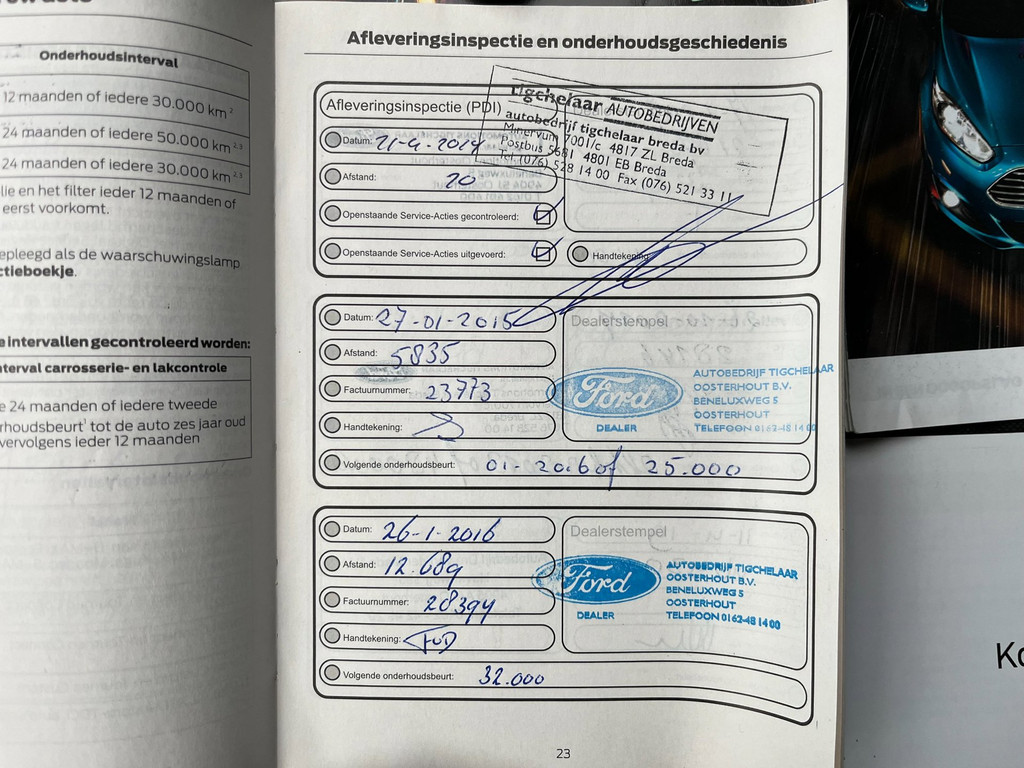 Onderhoudsinterval
12 maanden of iedere 30.000 km²
24 maanden of iedere 50.000 km
24 maanden of iedere 30.000 km
lie en het filter ieder 12 maanden of
eerst voorkomt.
epleegd als de waarschuwingslamp
ctieboekje.
e intervallen gecontroleerd worden:
terval carrosserie- en lakcontrole
e 24 maanden of iedere tweede
rhoudsbeurt¹ tot de auto zes jaar oud
vervolgens ieder 12 maanden
Afleveringsinspectie en onderhoudsgeschiedenis
Afleveringsinspectie (PDI)
Tigchelaar AUTOBEDRIJVEN
autobedrijf tigchelaar breda bv
Minervum 7001/c 4817 ZL Breda
Postbus 5681 4801 EB Breda
Tel. (076) 528 14 00 Fax (076) 521 33 11
Datum: 21-4-2014
Afstand: 20
Openstaande Service-Acties gecontroleerd:
Openstaande Service-Acties uitgevoerd:
Handtekening
Datum: 27-01-2015
Afstand: 5835
Factuurnummer: 23773
Handtekening:
Volgende onderhoudsbeurt: 01-2016 of 25.000
Dealerstempel
Ford
DEALER
AUTOBEDRIJF TIGCHELAAR
OOSTERHOUT B.V.
BENELUXWEG 5
OOSTERHOUT
TELEFOON 0162-48 14 00
Datum: 26-1-2016
Afstand: 12.689
Factuurnummer: 28394
Handtekening:
Volgende onderhoudsbeurt: 32.000
Dealerstempel
Ford
DEALER
AUTOBEDRIJF TIGCHELAAR
OOSTERHOUT B.V.
BENELUXWEG 5
OOSTERHOUT
TELEFOON 0162-48 14 00
23